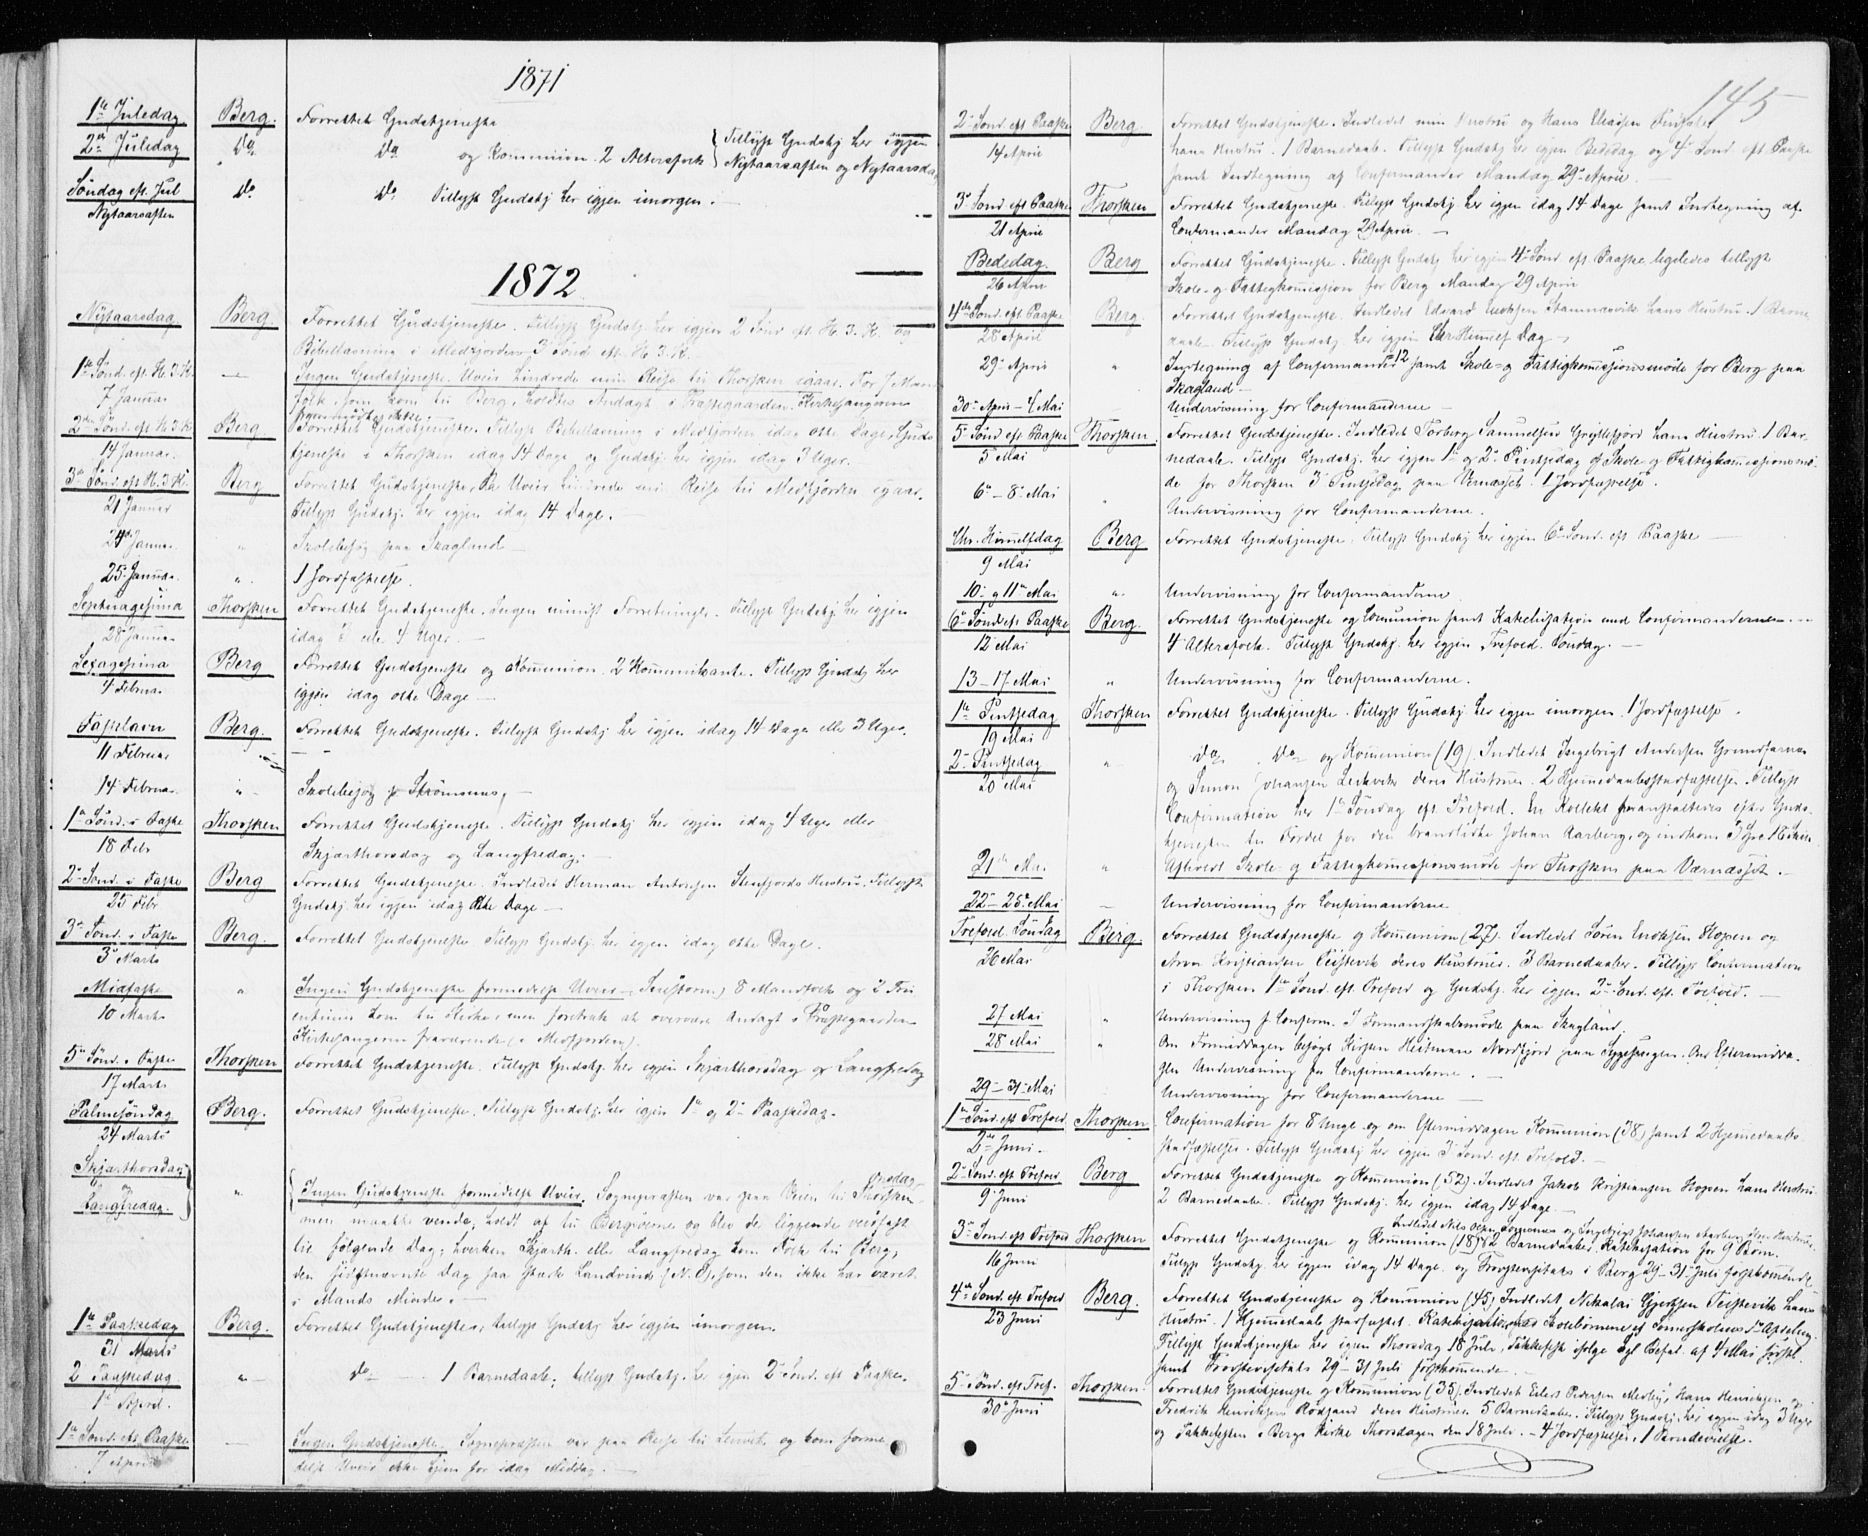 1871
1te Juledag Berg. Forrettet Gudstjeneste
2den Juledag Do Do og Kommunion. 2 Altersfolk { Tillyst Gudstj her igjen
Nytaarsaften og Nytaarsdag
Søndag eft. Jul Do Do Tillyst Gudstj her igjen imorgen. —
Nytaarsaften
1872
Nytaarsdag Berg. Forrettet Gudstjeneste. Tillyst Gudstj. her igjen 2 Sønd eft H. 3. K. og
Bibellæsning i Medfjorden 3 Sønd eft H. 3. K.
1te Sønd. eft H. 3. K. — Ingen Gudstjeneste. Uveir hindrede min Reise til Thorsken igaar. For 7 Mand
7 Januar folk som kom til Berg, holdtes Andagt i Præstegaarden. Kirkesangeren
fremmødte ikke. —
2den Sønd. eft H. 3. K. Berg Forrettet Gudstjeneste. Tillyst Bibellæsning i Medfjorden idag otte Dage, Guds
14 Januar. tjeneste i Thorsken idag 14 Dage og Gudstj. her igjen idag 3 Uger.
3die Sønd. eft H. 3. K. Berg Forrettet Gudstjeneste, da Uveir hindrede min Reise til Medfjorden igaar.
21 Januar Tillyst Gudstj. her igjen idag 14 Dage. —
24de Januar " Skolebesøg paa Skagland —
25 Januar " 1 Jordfæstelse.
Septuagesima Thorsken Forrettet Gudstjeneste. Ingen minist Forretninger. Tillyst Gudstj. her igjen
28 Januar idag 3 eller 4 Uger. —
Sexagesima Berg Forrettet Gudstjeneste og Kommunion. 2 Kommunikanter. Tillyst Gudstj her
4 Februar igjen idag otte Dage —
Fastelavn Berg. Forrettet Gudstjeneste. Tillyst Gudstj her igjen idag 14 Dage eller 3 Uger.
11 Februar —
14 Februar " Skolebesøg p Strømsnes,
1te Sønd. i Faste Thorsken Forrettet Gudstjeneste. Tillyst Gudstj her igjen idag 4 Uger eller
18 Febr Skjærthorsdag og Langfredag. —
2 Sønd. i Faste Berg Forrettet Gudstjeneste. Indledet Herman Antonsen Steinfjords Hustru. Tillyst
25 Febr Gudstj her igjen idag otte Dage —
3 Sønd. i Faste Berg. Forrettet Gudstjeneste Tillyst Gudstj. her igjen idag otte Dage.
3 Marts
Midfaste " Ingen Gudstjeneste formedelst Uveir (Snestorm) 8 Mandfolk og 2 Fru
10 Marts entimer kom til Kirke, men foretrak at overvære Andagt i Præstegaarden
Kirkesangeren fraværende (i Medfjorden).
5 Sønd. i Faste Thorsken Forrettet Gudstjeneste. Tillyst Gudstj. her igjen Skjærthorsdag og Langfredag
17 Marts
Palmesøndag Berg. Forrettet Gudstjeneste. Tillyst Gudstj. her igjen 1te og 2 Paaskedag.
24 Marts
Skjærthorsdag " Ingen Gudstjeneste formedelst Uveir. Sognepræsten var paa Veien til Thorsken Onsdag
og men maatte vende, holdt af til Bergsøerne og blev der liggende veirfast
Langfredag. til følgende Dag; hverken Skjærth. eller Langfredag kom Folk til Berg,
den sidstnævnte Dag saa stærk Landvind (N.O), som den ikke har været
i Mands Minde. —
1te Paaskedag Berg. Forrettet Gudstjeneste, tillyst Gudstj her igjen imorgen.
31 Marts
2 Paaskedag " do — 1 Barnedaab, tillyst Gudstj. her igjen 2 Sønd. eft Paaske.
1te April.
1te Sønd. eft Paaske — Ingen Gudstjeneste. Sognepræsten var paa Reise til Lenvik, og kom forme
7 April delst Uveir ikke hjem før idag Middag. —
145
2 Sønd. eft Paaske Berg Forrettet Gudstjeneste. Indledet min Hustru og Hans Eliasen Finsæter
14 April hans Hustru. 1 Barnedaab. Tillyst Gudstj her igjen Bededag og 4 Sønd. eft Paaske
samt Indtegning af Confirmander Mandag 29 April. —
3 Sønd eft Paaske Thorsken Forrettet Gudstjeneste. Tillyst Gudstj. her igjen idag 14 Dage samt Indtegning af
21 April Confirmander Mandag 29 April. —
Bededag Berg Forrettet Gudstjeneste. Tillyst Gudstj her igjen 4 Sønd. eft Paaske, ligeledes tillyst
26 April Skole- og Fattigkommission for Berg Mandag 29 April
4de Sønd. eft Paaske Berg. Forrettet Gudstjeneste. Indledet Edvard Stamnesvik hans Hustru. 1 Barne
28 April daab. Tillyst Gudstj. her igjen Chr Himmelf Dag —
29 April " Indtegning af Confirmander 12 samt Skole- og Fattigkommissionsmøde for Berg paa
Skagland —
30 April – 4 Mai Undervisning for Confirmanderne —
5 Sønd eft Paaske Thorsken Forrettet Gudstjeneste. Indledet Torberg Samuelsens Gryllefjord hans Hustru. 1 Bar
5 Mai nedaab. Tillyst Gudstj. her igjen 1te og 2 Pintsedag og Skole- og Fattigkommissionsmø
de for Thorsken 3 Pintsedag paa Værnæsset. 1 Jordfæstelse.
6 – 8 Mai " Undervisning for Confirmanderne.
Chr. Himmelfdag Berg Forrettet Gudstjeneste. Tillyst Gudstj her igjen 6 Sønd. eft Paaske —
9 Mai
10 og 11te Mai " Undervisning for Confirmanderne
6 Sønd eft Paaske Berg. Forrettet Gudstjeneste og Communion samt Katekisation med Confirmanderne —
12 Mai 4 Altersfolk. Tillyst Gudstj. her igjen Trefold. Søndag. —
13 – 17 Mai " Undervisning for Confirmanderne.
1te Pintsedag Thorsken Forrettet Gudstjeneste. Tillyst Gudstj her igjen imorgen. 1 Jordfæstelse.
19 Mai
2 Pintsedag " do do og Kommunion (19). Indledet Ingebrigt Andersen Grundfarnes
20 Mai og Simon Johansen Leikvik deres Hustruer. 2 Hjemmedaabsstadfæstelser. Tillyst
Confirmation her 1te Søndag eft Trefold. En Kollekt foranstaltedes efter Guds-
tjenesten til Fordel for den brandlidte Johan Aarberg, og indkom 3 Spd 16 Skill.
21de Mai " Afholdt Skole- og Fattigkommissionsmøde for Thorsken paa Værnæsset. —
22 – 25 Mai — Undervisning for Confirmanderne
Trefold. Søndag Berg. Forrettet Gudstjeneste og Kommunion (27). Indledet Søren Ericksen Hopen og
26 Mai Aron Kristiansen Teistevik deres Hustruer. 3 Barnedaab. Tillyst Confirmation
i Thorsken 1te Sønd. eft. Trefold og Gudstj. her igjen 2 Sønd. eft. Trefold. —
27 Mai " Undervisning f Conferm. I Formandskabsmøde paa Skagland.
28 Mai " Om Formiddagen besøgt Kirsten Heitmann Nordfjord paa Sygesengen. Om Eftermidda-
gen Undervisning for Confirmanderne. —
29 – 31 Mai Undervisning for Confirmanderne —
1te Sønd. eft Trefold. Thorsken Confirmation for 8 Unge og om Eftermiddagen Kommunion (38) samt 2 Hjemmedaabs-
2den Juni. stadfæstelser. Tillyst Gudstj her igjen 3 Sønd. eft. Trefold. —
2 Sønd. eft Trefold Berg Forrettet Gudstjeneste og Kommunion (52). Indledet Jakob Kristiansen Hopen hans Hustru.
9 Juni 2 Barnedaab. Tillyst Gudstj. her igjen idag 14 Dage. —
Indledet Nils Olsen og Ingebrigt Johansen Aarberg deres Hustruer.
3 Sønd eft Trefold Thorsken Forrettet Gudstjeneste og Kommunion (18) 2 Barnedaab. Katekisation for 9 Børn.
16 Juni Tillyst Gudstj. her igjen idag 14 Dage og Provstevisitats i Berg 29 – 31 Juli førstkommende.
4de Sønd. eft Trefold Berg. Forrettet Gudstjeneste og Kommunion (45) Indledet Nikolai Gjertsen Teistevik hans
23 Juni Hustru. 1 Hjemmedaab stadfæstet. Katekisation med Skolebørnene af Sommerskolens 1te Afdeling.
Tillyst Gudstjeneste her igjen Thorsdag 18 Juli, Takkefest ifølge Kgl Befal. af 4 Mai sidstl.
samt Provstevisitats 29 – 31 Juli førstkommende. —
5 Sønd. eft Tref. Thorsken Forrettet Gudstjeneste og Kommunion (35). Indledet Eilert Pedersen Medby, Hans Henriksen og
30 Juni Fredrik Henriksen Rødsand deres Hustruer. 5 Barnedaab. Tillyst Gudstj. her igjen idag 3 Uger
og Takkefesten i Bergs Kirke Thorsdagen den 18 Juli. – 4 Jordfæstelser, 1 Barnedaab.